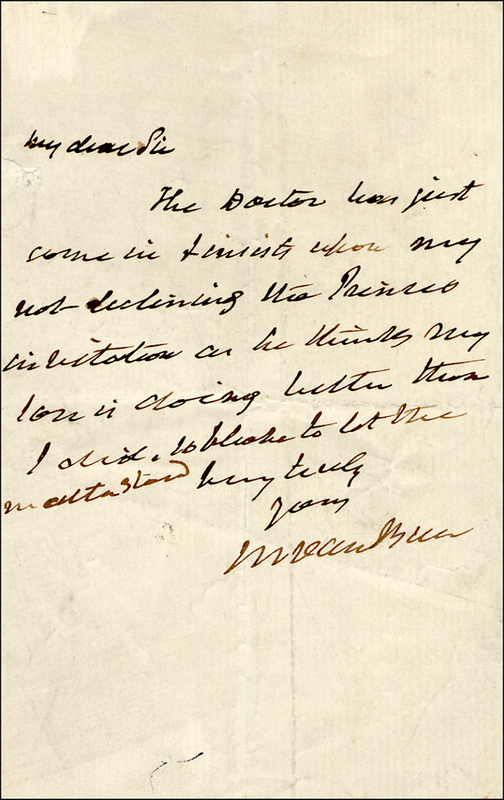 My dear Sir
The Doctor has just
come in & insists upon my
not declining the Princes
invitation as he thinks my
is doing better than
I did, so please to let the
matter stand Very truly
yours
M Van Buren